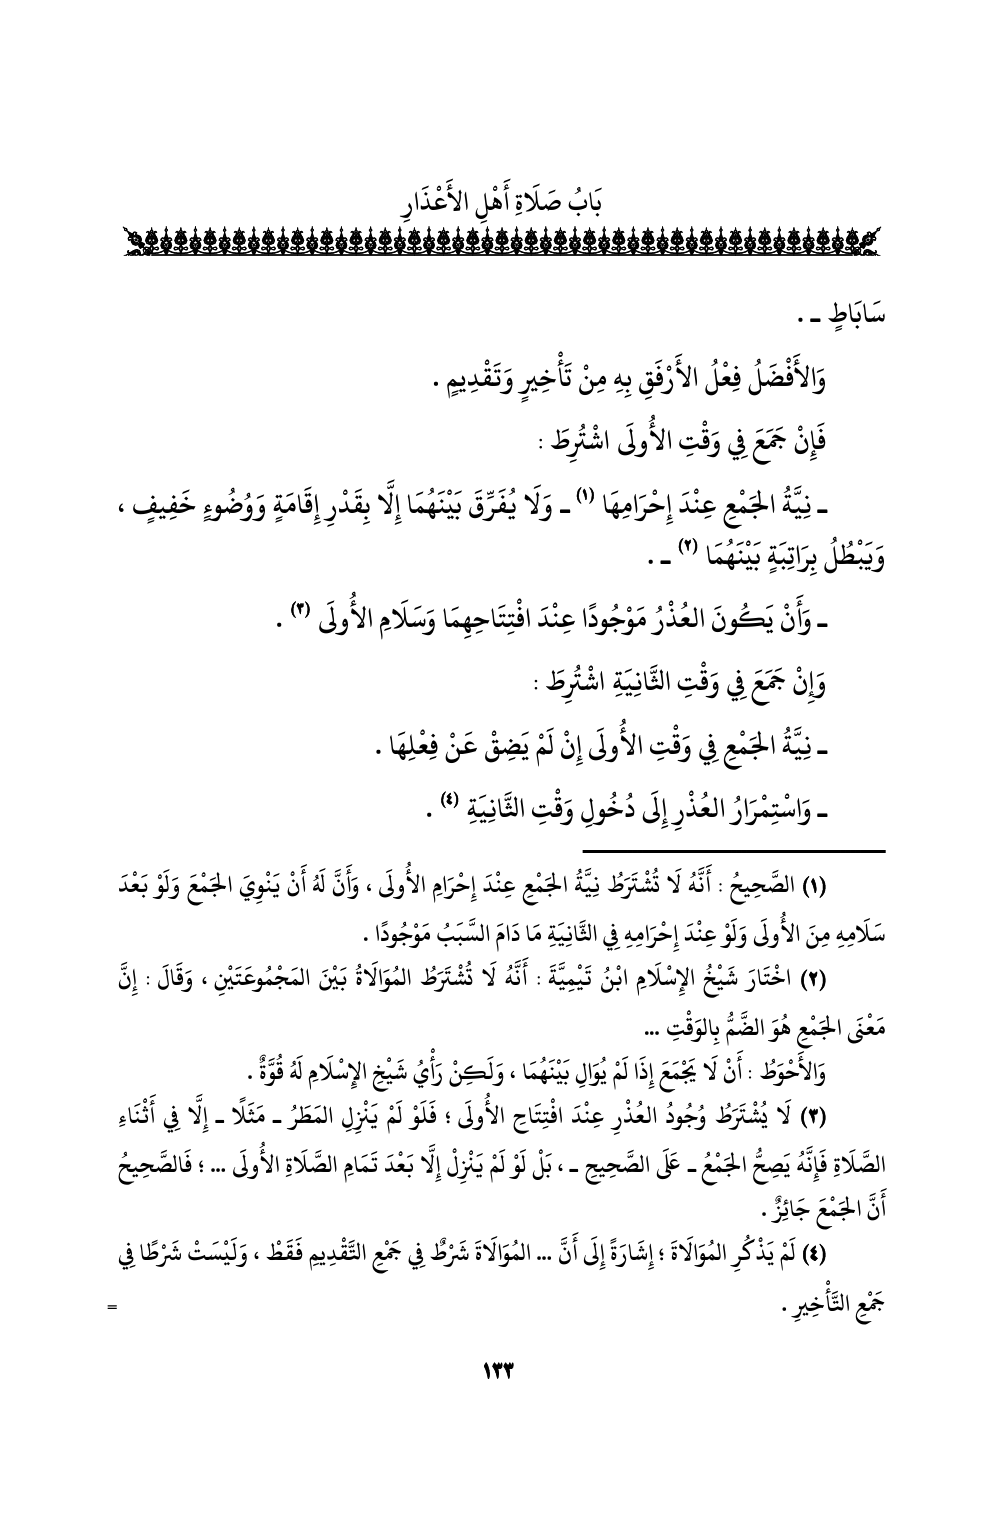 بَابُ صَلَاةِ أَهْلِ الأَعْذَارِ
سَابَاطٍ ـ .
وَالأَفْضَلُ فِعْلُ الأَرْفَقِ بِهِ مِنْ تَأْخِيرٍ وَتَقْدِيمٍ .
فَإِنْ جَمَعَ فِي وَقْتِ الأُولَى اشْتُرِطَ :
ـ نِيَّةُ الجَمْعِ عِنْدَ إِحْرَامِهَا (١) ـ وَلَا يُفَرِّقَ بَيْنَهُمَا إِلَّا بِقَدْرِ إِقَامَةٍ وَوُضُوءٍ خَفِيفٍ ،
وَيَبْطُلُ بِرَاتِبَةٍ بَيْنَهُمَا (٢) ـ .
ـ وَأَنْ يَكُونَ العُذْرُ مَوْجُودًا عِنْدَ افْتِتَاحِهِمَا وَسَلَامِ الأُولَى (٣) .
وَإِنْ جَمَعَ فِي وَقْتِ الثَّانِيَةِ اشْتُرِطَ :
ـ نِيَّةُ الجَمْعِ فِي وَقْتِ الأُولَى إِنْ لَمْ يَضِقْ عَنْ فِعْلِهَا .
ـ وَاسْتِمْرَارُ العُذْرِ إِلَى دُخُولِ وَقْتِ الثَّانِيَةِ (٤) .
(١) الصَّحِيحُ : أَنَّهُ لَا تُشْتَرَطُ نِيَّةُ الجَمْعِ عِنْدَ إِحْرَامِ الأُولَى ، وَأَنَّ لَهُ أَنْ يَنْوِيَ الجَمْعَ وَلَوْ بَعْدَ
سَلَامِهِ مِنَ الأُولَى وَلَوْ عِنْدَ إِحْرَامِهِ فِي الثَّانِيَةِ مَا دَامَ السَّبَبُ مَوْجُودًا .
(٢) اخْتَارَ شَيْخُ الإِسْلَامِ ابْنُ تَيْمِيَّةَ : أَنَّهُ لَا تُشْتَرَطُ المُوَالَاةُ بَيْنَ المَجْمُوعَتَيْنِ ، وَقَالَ : إِنَّ
مَعْنَى الجَمْعِ هُوَ الضَّمُّ بِالوَقْتِ ...
وَالأَحْوَطُ : أَنْ لَا يَجْمَعَ إِذَا لَمْ يُوَالِ بَيْنَهُمَا ، وَلَكِنْ رَأْيُ شَيْخِ الإِسْلَامِ لَهُ قُوَّةٌ .
(٣) لَا يُشْتَرَطُ وُجُودُ العُذْرِ عِنْدَ افْتِتَاحِ الأُولَى ؛ فَلَوْ لَمْ يَنْزِلِ المَطَرُ ـ مَثَلًا ـ إِلَّا فِي أَثْنَاءِ
الصَّلَاةِ فَإِنَّهُ يَصِحُّ الجَمْعُ ـ عَلَى الصَّحِيحِ ـ ، بَلْ لَوْ لَمْ يَنْزِلْ إِلَّا بَعْدَ تَمَامِ الصَّلَاةِ الأُولَى ... ؛ فَالصَّحِيحُ
أَنَّ الجَمْعَ جَائِزٌ .
(٤) لَمْ يَذْكُرِ المُوَالَاةَ ؛ إِشَارَةً إِلَى أَنَّ ... المُوَالَاةَ شَرْطٌ فِي جَمْعِ التَّقْدِيمِ فَقَطْ ، وَلَيْسَتْ شَرْطًا فِي
جَمْعِ التَّأْخِيرِ . =
١٣٣